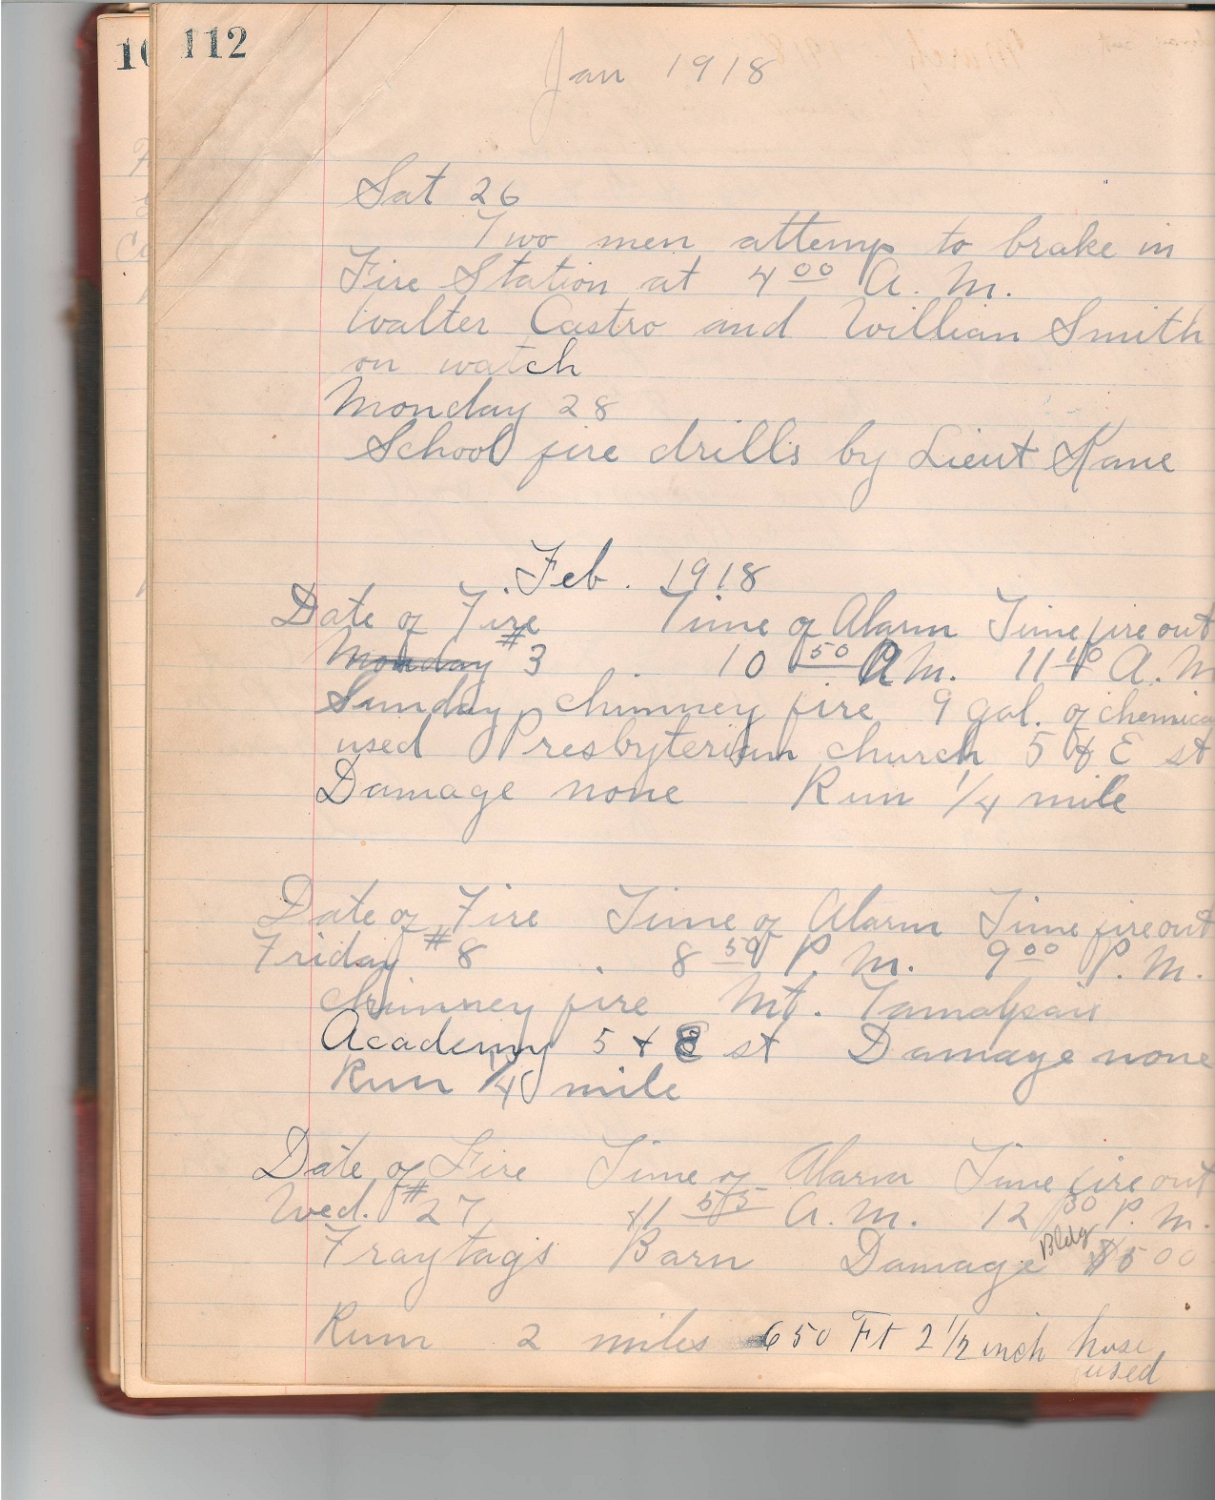 112
Jan 1918
Sat 26
Two men attemp to brake in
Fire Station at 4 00 A. M.
Walter Castro and Willian Smith
on watch
Monday 28
School fire drills by Lieut Kane
Feb. 1918
Date of Fire Time of Alarm Time fire out
Monday #3 10 50 A M. 11 10 A. M
Sunday chimney fire 9 gal. of chemica
used Presbyterian church 5 & E st
Damage none Run 1/4 mile
Date of Fire Time of Alarm Time fire out
Friday #8 8 50 P. M. 9 00 P. M.
chimney fire Mt. Tamalpais
Academy 5 & E st Damage none
Run 1/4 mile
Date of Fire Time of Alarm Time fire out
Wed. #27 11 55 A. M. 12 30 P. M.
Fraytag's Barn Damage Bldg
Run 2 miles 650 Ft 2 1/2 inch hose
used